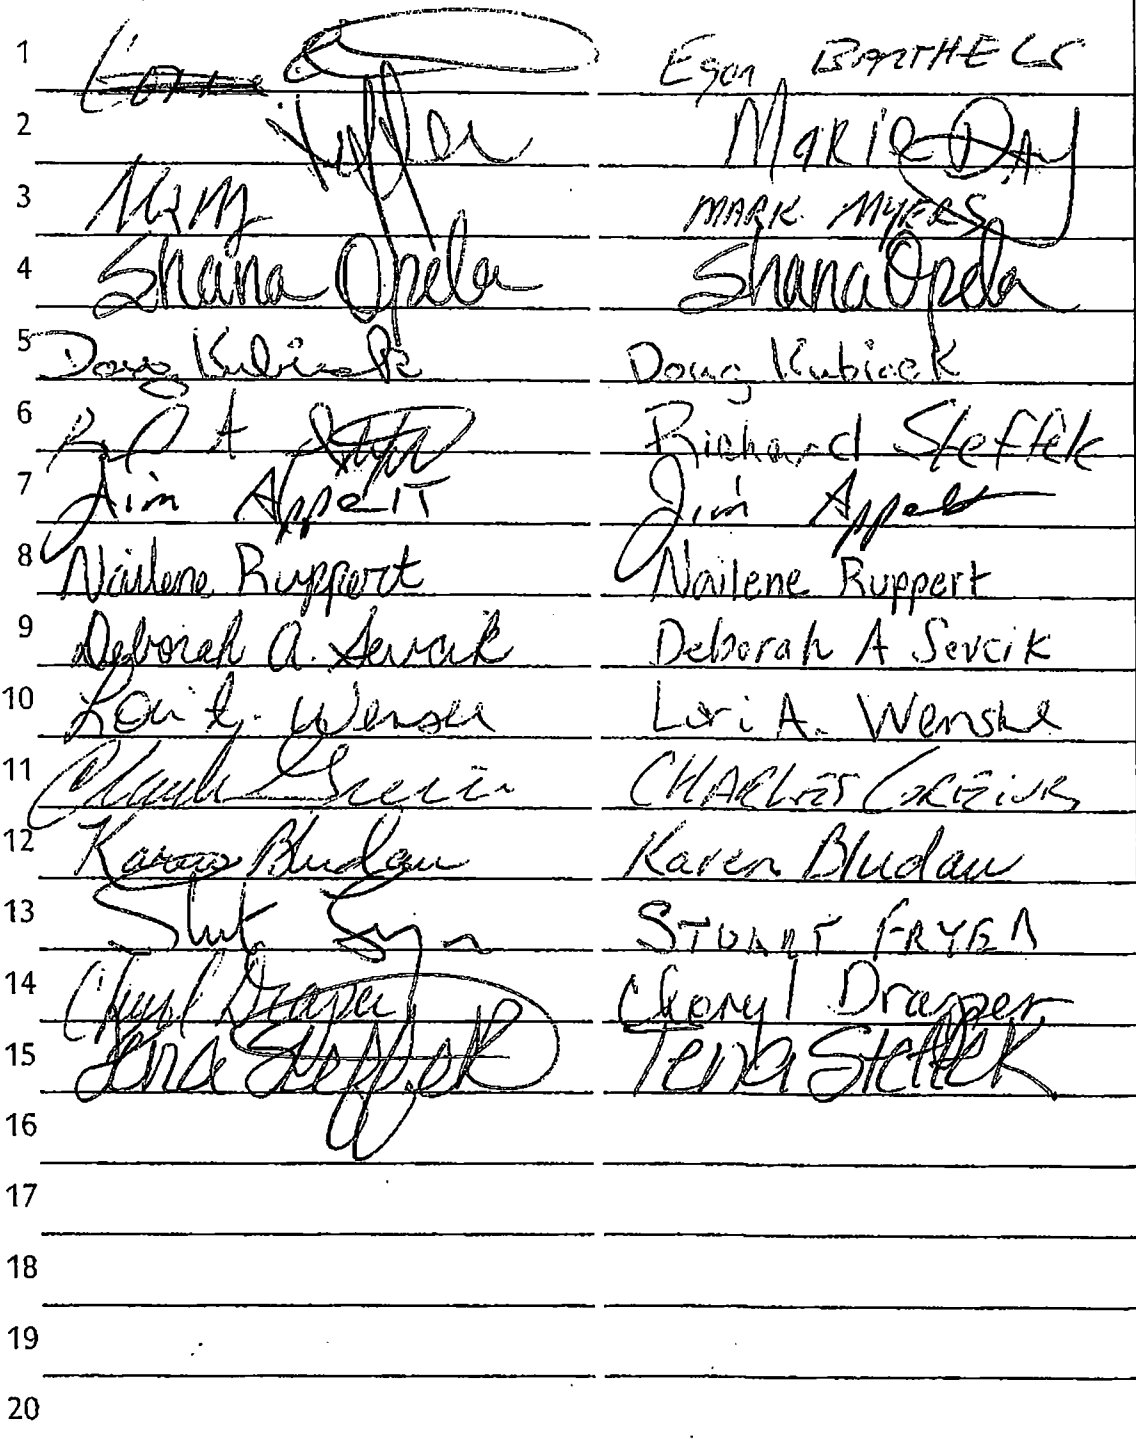 1 Egon BARTHELS
2 Marie Day
3 MARK MYERS
4 Shana Opela Shana Opela
5 Doug Kubicek Doug Kubicek
6 Richard Steffek
7 Jim Appelt Jim Appelt
8 Nailene Ruppert Nailene Ruppert
9 Deborah A. Sevcik Deborah A Sevcik
10 Lori A. Wenske Lori A. Wenske
11 CHARLES
12 Karen Bludau Karen Bludau
13 STUART FRYER
14 Cheryl Draper Cheryl Draper
15 Steffek Steffek
16
17
18
19
20